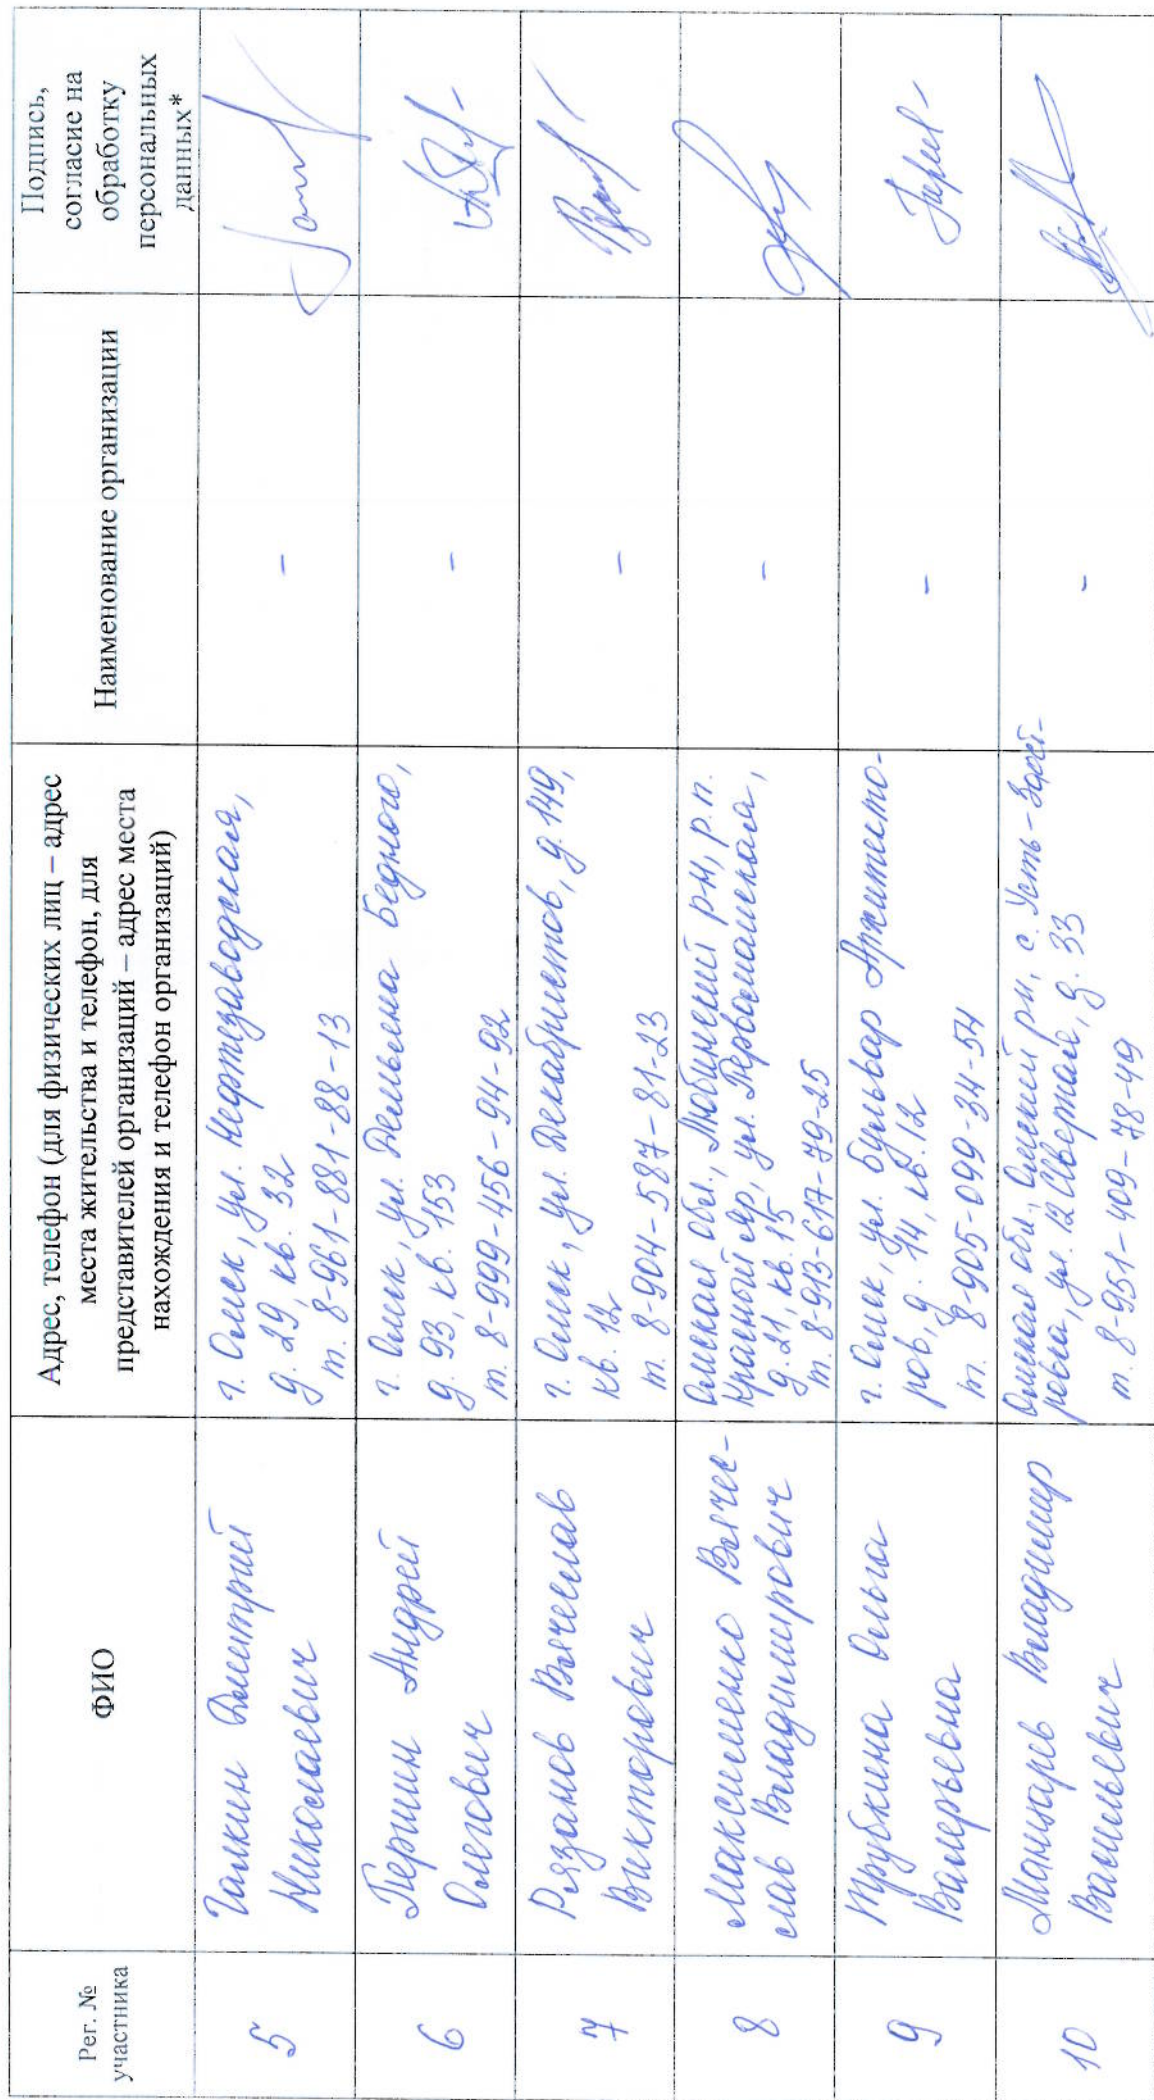 Рег. №
участника
ФИО
Адрес, телефон (для физических лиц – адрес
места жительства и телефон, для
представителей организаций – адрес места
нахождения и телефон организаций)
Наименование организации
Подпись,
согласие на
обработку
персональных
данных*
5
Галкин Дмитрий
Николаевич
г. Омск, ул. Нефтезаводская,
д. 29, кв. 32
т. 8-961-881-88-13
-
6
Першин Андрей
Олегович
г. Омск, ул. Демьяна Бедного,
д. 93, кв. 153
т. 8-999-456-94-92
-
7
Рязанов Вячеслав
Викторович
г. Омск, ул. Декабристов, д. 149,
кв. 12
т. 8-904-587-81-23
-
8
Максименко Вячес-
лав Владимирович
Омская обл., Любинский р-н, р.п.
Красный Яр, ул. Первомайская,
д. 21, кв. 15
т. 8-913-617-79-25
-
9
Трубкина Ольга
Валерьевна
г. Омск, ул. Бульвар Архитекто-
ров, д. 14, кв. 12
т. 8-905-099-34-54
-
10
Владимир
Васильевич
Омская обл., Омский р-н, с. Усть-Заост-
ровка, ул. 12 д. 33
т. 8-951-409-78-49
-